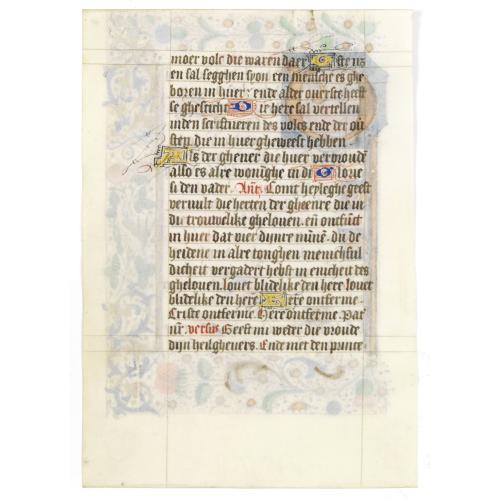 moer volc die waren daer En sal
en sal segghen syon een mensche es ghe
boren in huer: ende alder ouerste heeft
se ghesticht Die here sal vertellen
inden scrifturen des volcs ende der ou
sten die in huer gheweest hebben
Als der ghener die huer verwoudē
also es alre woninghe in di Glorie
si den vader. Ant. Comt heyleghe gheest
veruult die herten der gheenre die in
di trouwelike ghelouen. eñ ontfuct
in huer dat vier dijnre minē. Du de
heidene in alre tonghen menichful
dicheit vergadert hebst in enicheit des
ghelouen. louet blidelike den here louet
blidelike den here Here ontferme.
Criste ontferme. Here ontferme. Pat
nr̄. versus Gheeft mi weder die vroude
dijn heilgheuers. Ende met den prince-